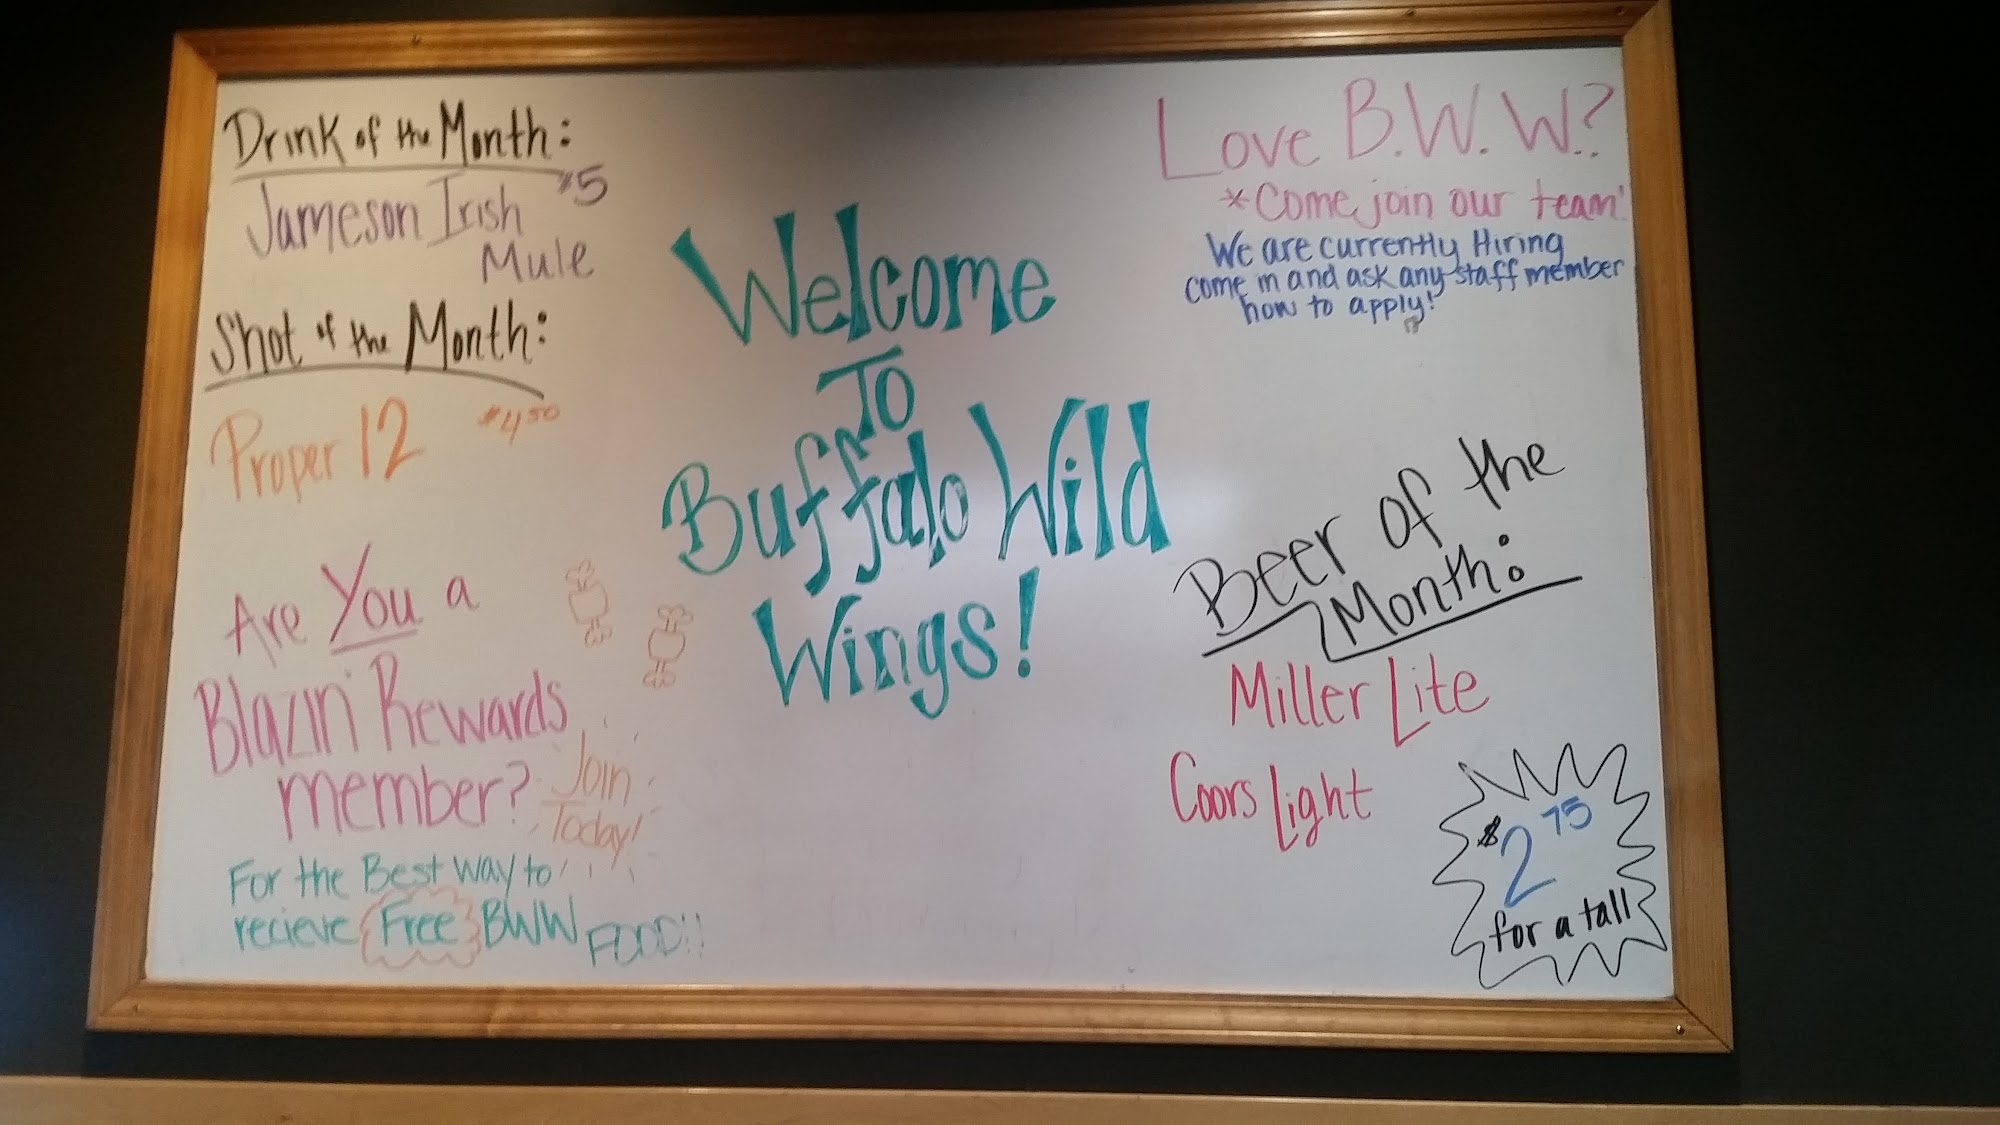 Drink of the Month:
Jameson Irish $5
Mule
Shot of the Month:
Proper 12 $4.50
Are You a
Blazin' Rewards
member? Join
Today!
For the Best way to
recieve Free BWW FOOD!!
Welcome
To
Buffalo Wild
Wings!
Love B.W.W.?
*Come join our team!
We are currently Hiring
come in and ask any staff member
how to apply!
Beer of the
Month:
Miller Lite
Coors Light
$2 75
for a tall